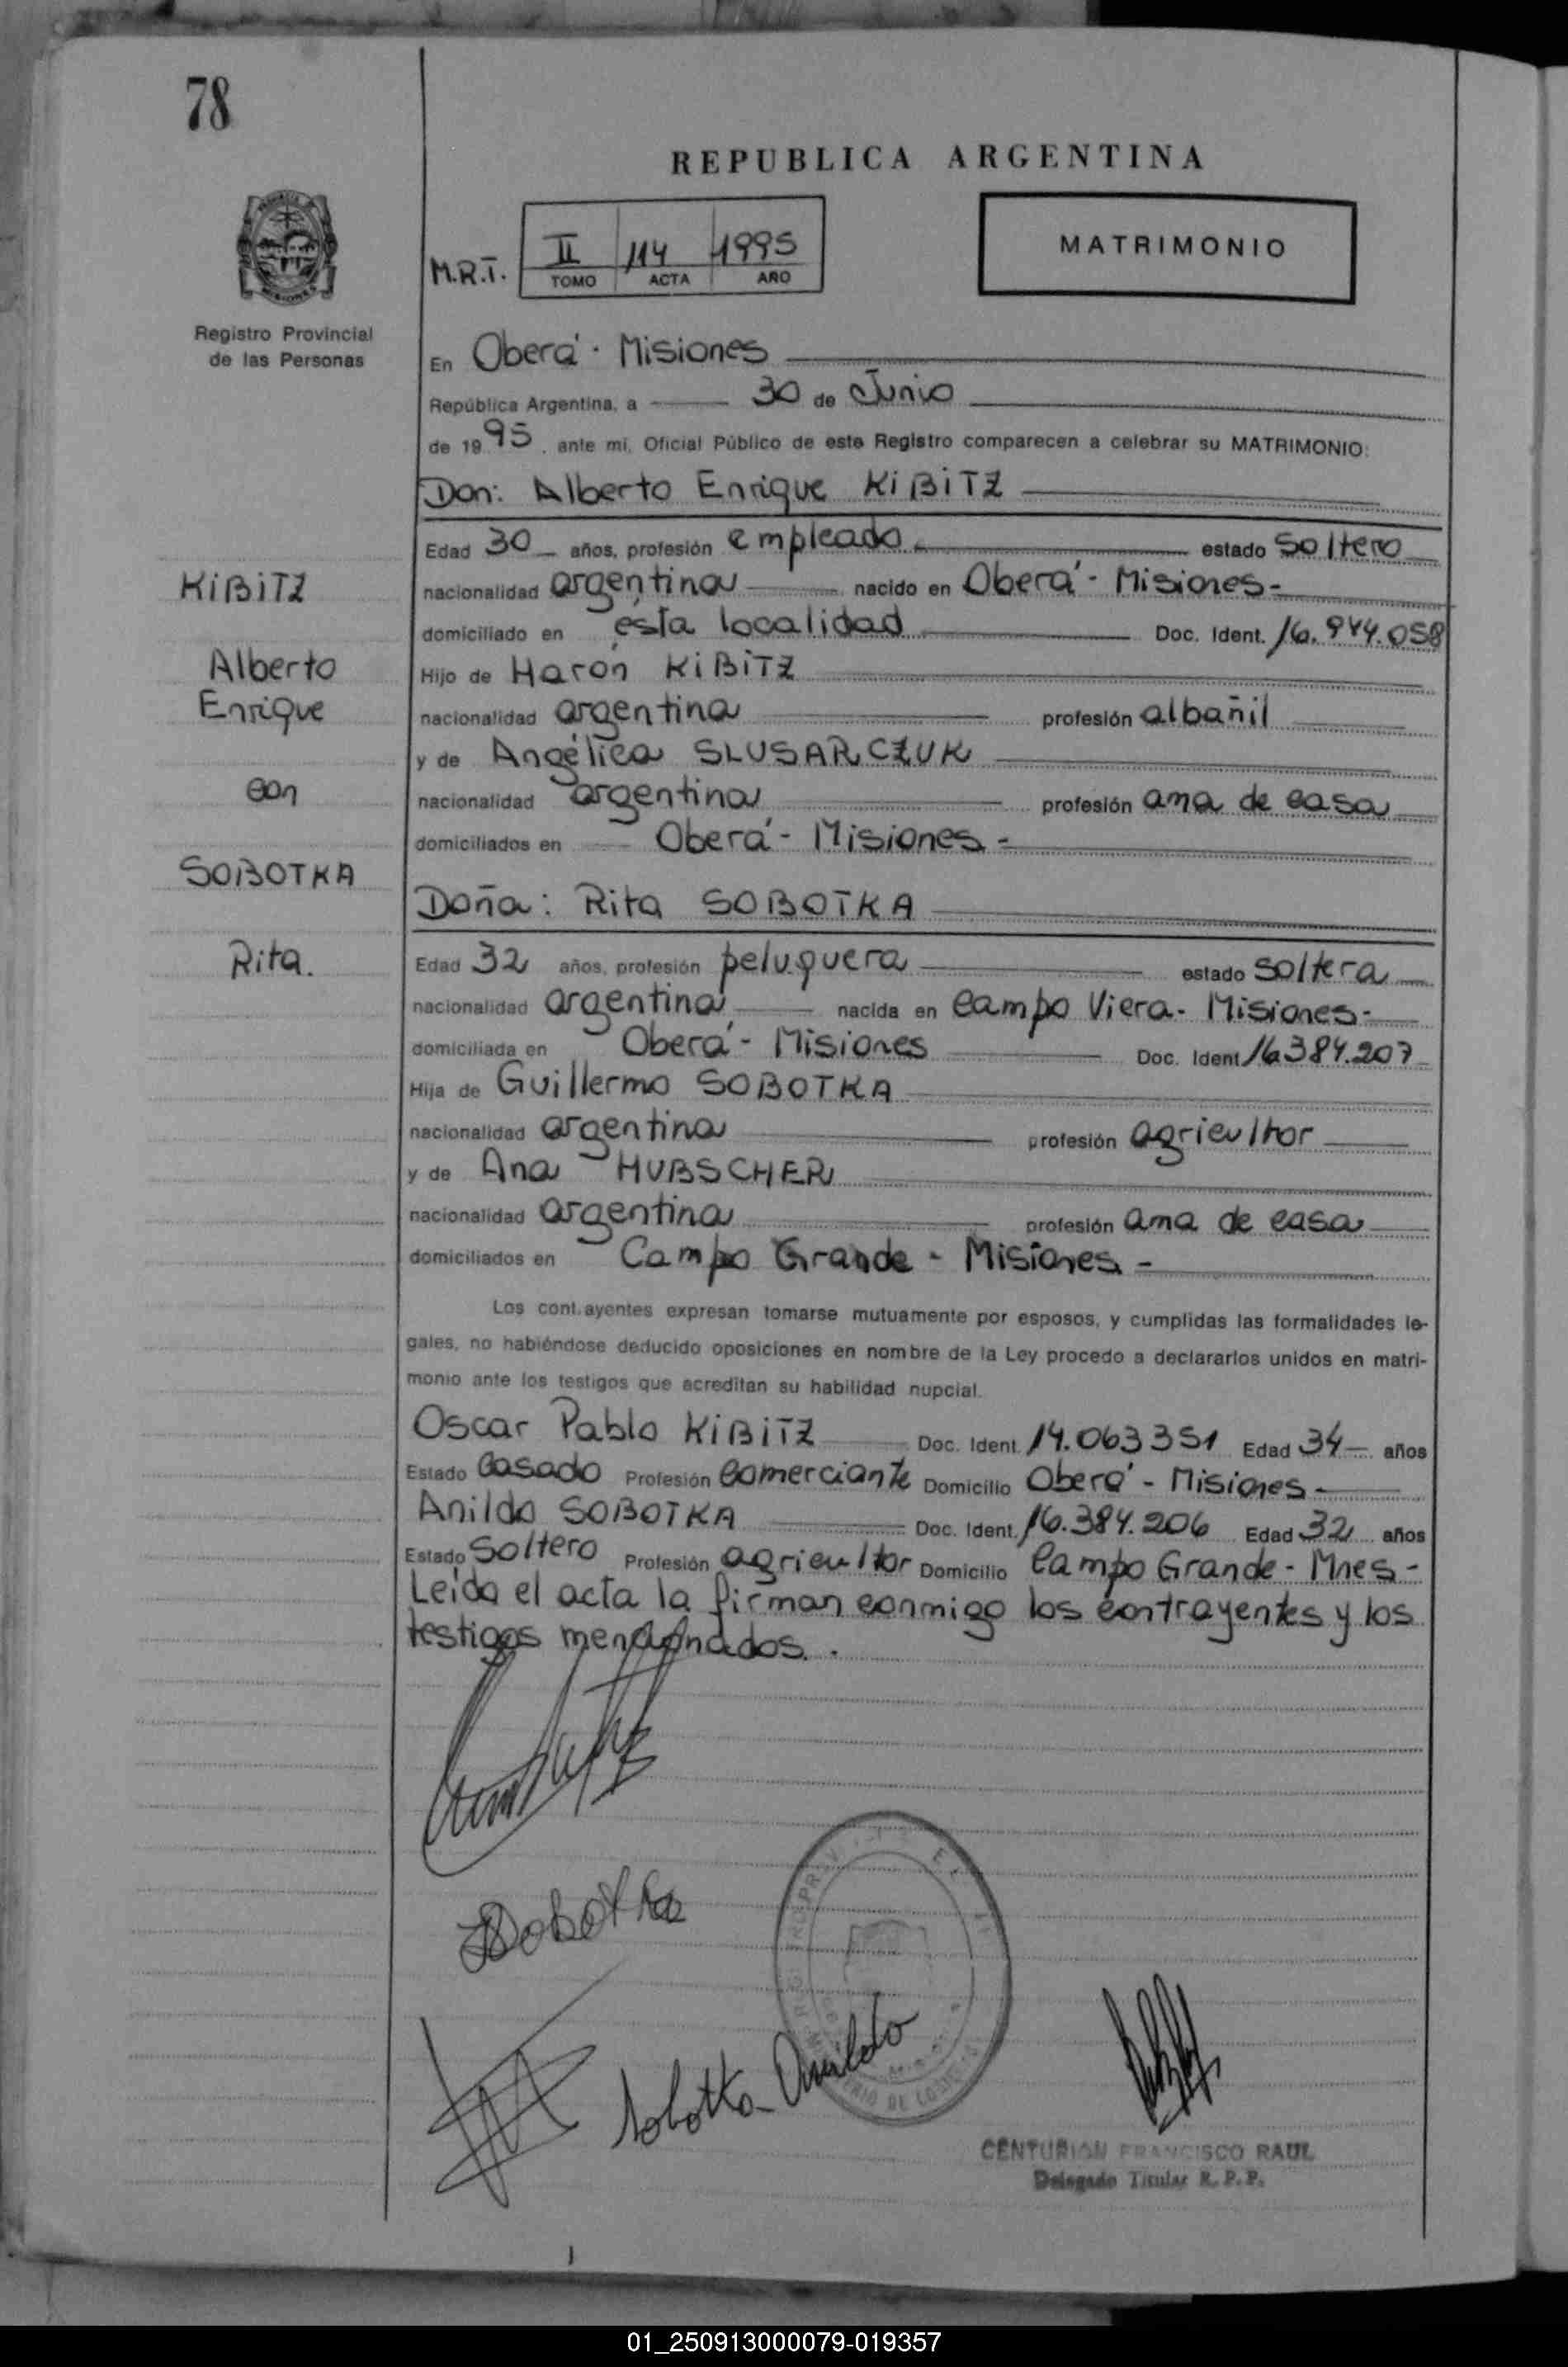 78
REPUBLICA ARGENTINA
M.R.I. II 114 1995
TOMO ACTA AÑO
MATRIMONIO
Registro Provincial
de las Personas
En Oberá - Misiones
República Argentina, a 30 de Junio
de 1995, ante mi, Oficial Público de este Registro comparecen a celebrar su MATRIMONIO:
Don: Alberto Enrique KIBITZ
Edad 30 años, profesión empleado estado soltero
nacionalidad argentina nacido en Oberá - Misiones-
domiciliado en ésta localidad Doc. Ident. 16.944.058
Hijo de Harón KIBITZ
nacionalidad argentina profesión albañil
y de Angélica SLUSARCZUK
nacionalidad argentina profesión ama de casa
domiciliados en Oberá - Misiones -
KIBITZ
Alberto
Enrique
con
SOBOTKA
Rita.
Doña: Rita SOBOTKA
Edad 32 años, profesión peluquera estado soltera
nacionalidad argentina nacida en Campo Viera - Misiones-
domiciliada en Oberá - Misiones Doc. Ident 16.384.207
Hija de Guillermo SOBOTKA
nacionalidad argentina profesión agricultor
y de Ana HUBSCHER
nacionalidad argentina profesión ama de casa
domiciliados en Campo Grande - Misiones -
Los cont.ayentes expresan tomarse mutuamente por esposos, y cumplidas las formalidades le-
gales, no habiéndose deducido oposiciones en nombre de la Ley procedo a declararlos unidos en matri-
monio ante los testigos que acreditan su habilidad nupcial.
Oscar Pablo KIBITZ Doc. Ident. 14.063351 Edad 34 años
Estado Casado Profesión Comerciante Domicilio Oberá - Misiones-
Anildo SOBOTKA Doc. Ident. 16.384.206 Edad 32 años
Estado Soltero Profesión agricultor Domicilio Campo Grande - Mnes-
Leída el acta la firman conmigo los contrayentes y los
testigos mencionados.
Sobotka
Sobotka Anildo
CENTURION FRANCISCO RAUL
Delegado Titular R.P.P.
01_250913000079-019357